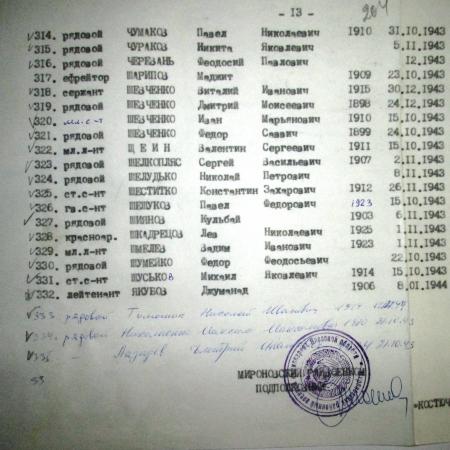 - 13 - 204
314. рядовой ЧУМАКОВ Павел Николаевич 1910 31.10.1943
315. рядовой ЧУРАКОВ Никита Яковлевич 5.11.1943
316. рядовой ЧЕРЕЗАНЬ Феодосий Павлович 12.1943
317. ефрейтор ШАРИПОВ Маджит 1909 23.10.1943
318. сержант ШЕВЧЕНКО Виталий Иванович 1915 30.12.1943
319. рядовой ШЕВЧЕНКО Дмитрий Моисеевич 1898 24.12.1943
320. мл.с-т ШЕВЧЕНКО Иван Марьянович 1910 15.10.1943
321. рядовой ШЕВЧЕНКО Федор Саввич 1899 24.10.1943
322. мл.л-нт ЩЕИН Валентин Сергеевич 1911 15.10.1943
323. рядовой ШЕЛКОПЛЯС Сергей Васильевич 1907 2.11.1943
324. рядовой ШЕЛУДЬКО Николай Петрович 8.11.1943
325. ст.с-нт ШЕСТИТКО Константин Захарович 1912 26.11.1943
326. гв.с-нт ШЕПУКОВ Павел Федорович 1923 15.10.1943
327. рядовой ШИЯНОВ Кульбай 1903 6.11.1943
328. красноар. ШКАДРЕЦОВ Лев Николаевич 1925 1.11.1943
329. мл.л-нт ШМЕЛЕВ Вадим Иванович 1923 1.11.1943
330. рядовой ШУМЕЙКО Федор Феодосьевич 22.10.1943
331. ст.с-нт ШУСЬКОВ Михаил Яковлевич 1914 15.10.1943
332. лейтенант ЯКУБОВ Джуманад 1906 8.01.1944
333. рядовой Николай Иванович
334. рядовой Николаенко 1910 21.10.43
335 - Лазарев Дмитрий 21.10.43
53
МИРОНОВСКИЙ РАЙВОЕНКОМ
ПОДПОЛКОВНИК